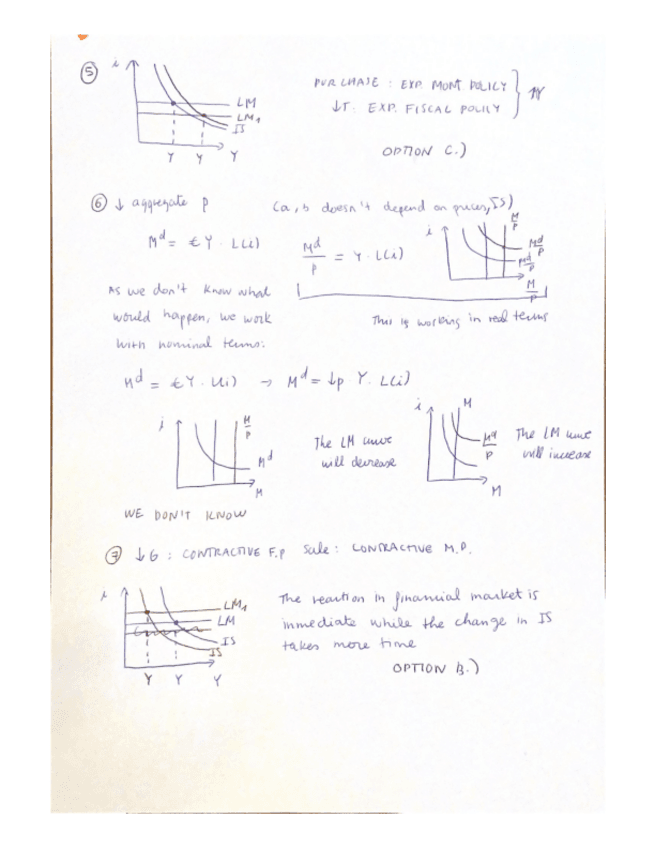 5
i
LM
LM1
IS
Y Y Y
PURCHASE : EXP. MONT. POLICY
↓T: EXP. FISCAL POLICY
OPTION C.)
6 ↓ aggregate p (a, b doesn't depend on prices, IS)
M^d = €Y · L(i)
M^d/P = Y · L(i)
i
M/P
M^d/P
M^d/P
M/P
As we don't know what
would happen, we work
with nominal terms:
This is working in real terms
M^d = €Y · L(i) → M^d = ↓p Y · L(i)
i
M/P
M^d
M
The LM curve
will decrease
i
M
M^d/P
M
The LM curve
will increase
WE DON'T KNOW
7 ↓G : CONTRACTIVE F.P Sale : CONTRACTIVE M.P.
i
LM1
LM
IS
IS
Y Y Y
The reaction in financial market is
immediate while the change in IS
takes more time
OPTION B.)